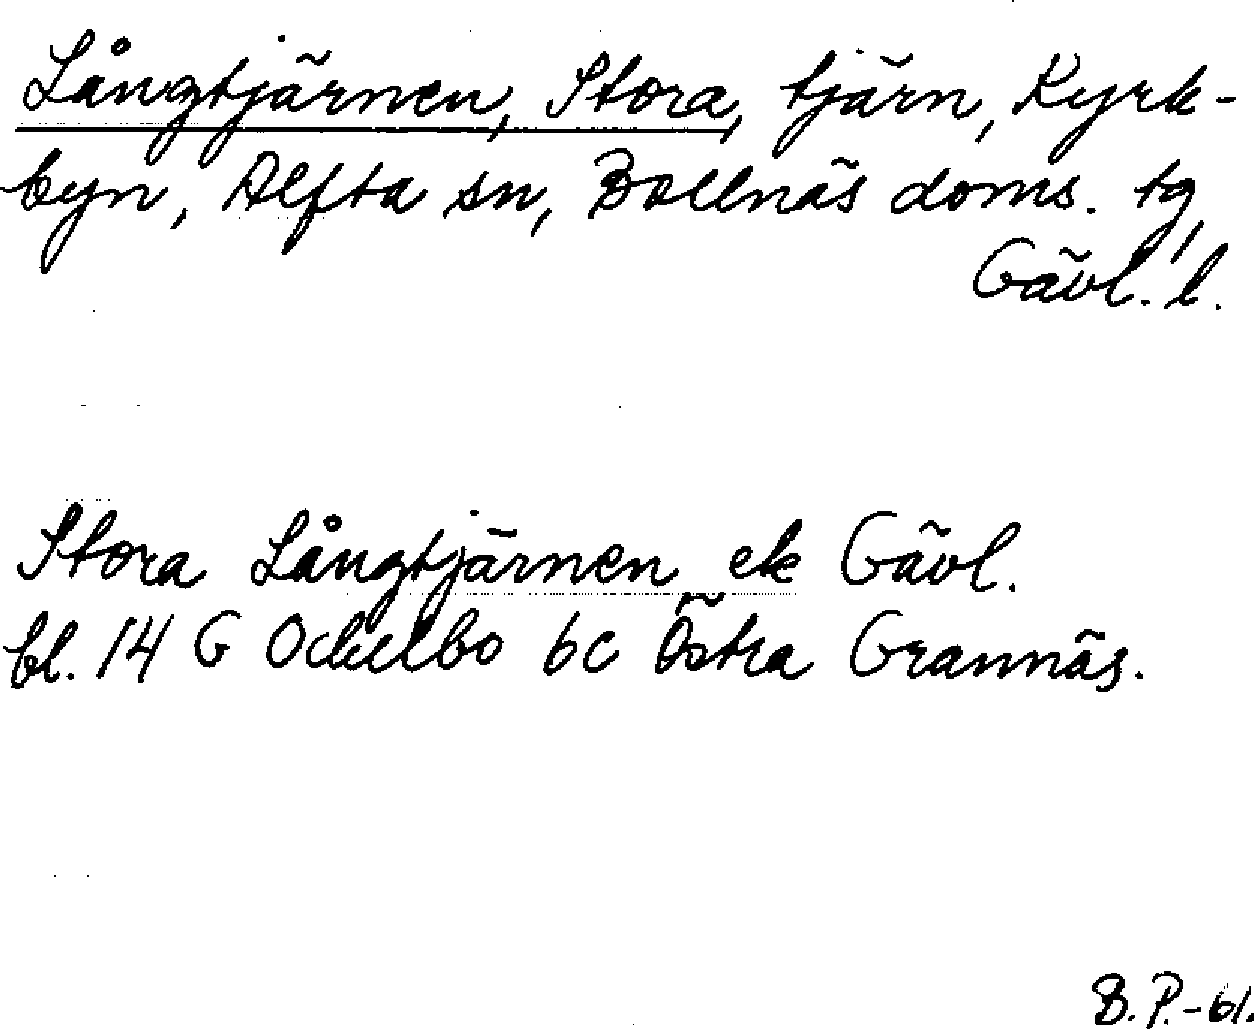 Långtjärnen, Stora, tjärn, Kyrk-
byn, Alfta sn, Bollnäs doms. tg,
Gävl. l.
Stora Långtjärnen ek Gävl.
bl. 14 G Ockelbo 6c Östra Grannäs.
B. P.-61.